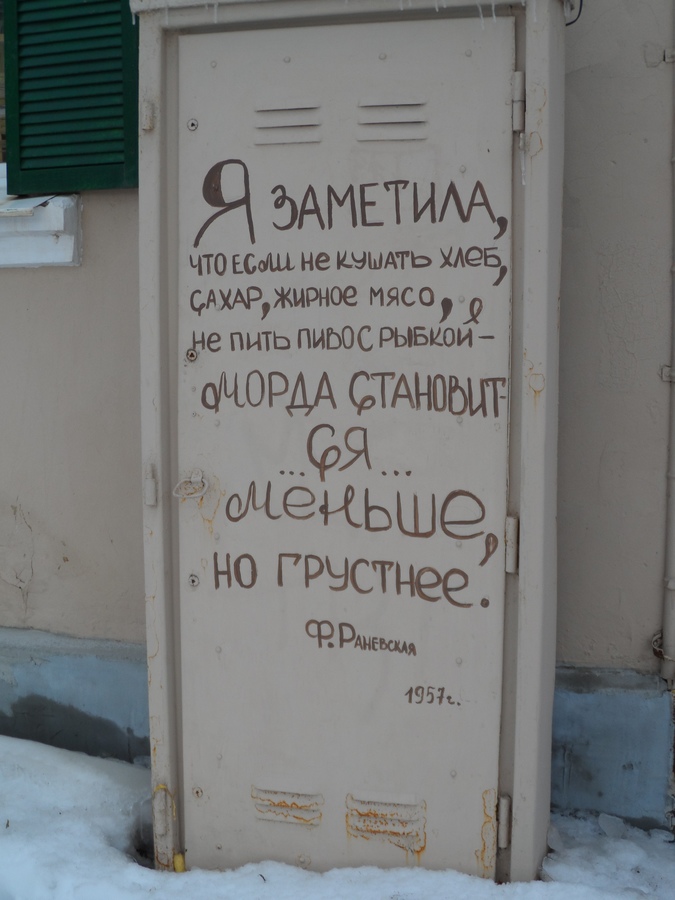 Я ЗАМЕТИЛА,
ЧТО ЕСЛИ НЕ КУШАТЬ ХЛЕБ,
САХАР, ЖИРНОЕ МЯСО,
НЕ ПИТЬ ПИВО С РЫБКОЙ –
МОРДА СТАНОВИТ-
...СЯ...
МЕНЬШЕ,
НО ГРУСТНЕЕ.
Ф. РАНЕВСКАЯ
1957г.